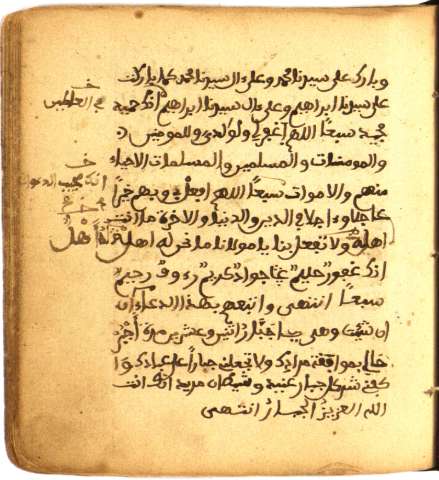 وبارك على سيدنا محمد وعلى ءال سيدنا محمد كما باركت
على سيدنا ابراهيم وعلى ءال سيدنا ابراهيم انك حميد
في العالمين
مجيد سبعا اللهم اغفر لي ولوالدي وللمومنين
والمومنات والمسلمين والمسلمات الاحياء
منهم والاموات سبعا اللهم افعل بي وبهم خيرا
انك مجيب الدعوات
عاجلا و اجلا في الدين والدنيا والاخرة ما انت
اهله ولا تفعل بنا يا مولانا ما نحن له اهل
انك غفور حليم جواد كريم رءوف رحيم
سبعا انتهى واتبعه بهذا الدعاء
ان شئت وهو يا جبار اثنين وعشرين مرة
بموافقة مرادك ولا تجعلني جبارا على عبادك و
كفني شر كل جبار عنيد وشيطان مريد انك انت
الله العزيز الجبار انتهى